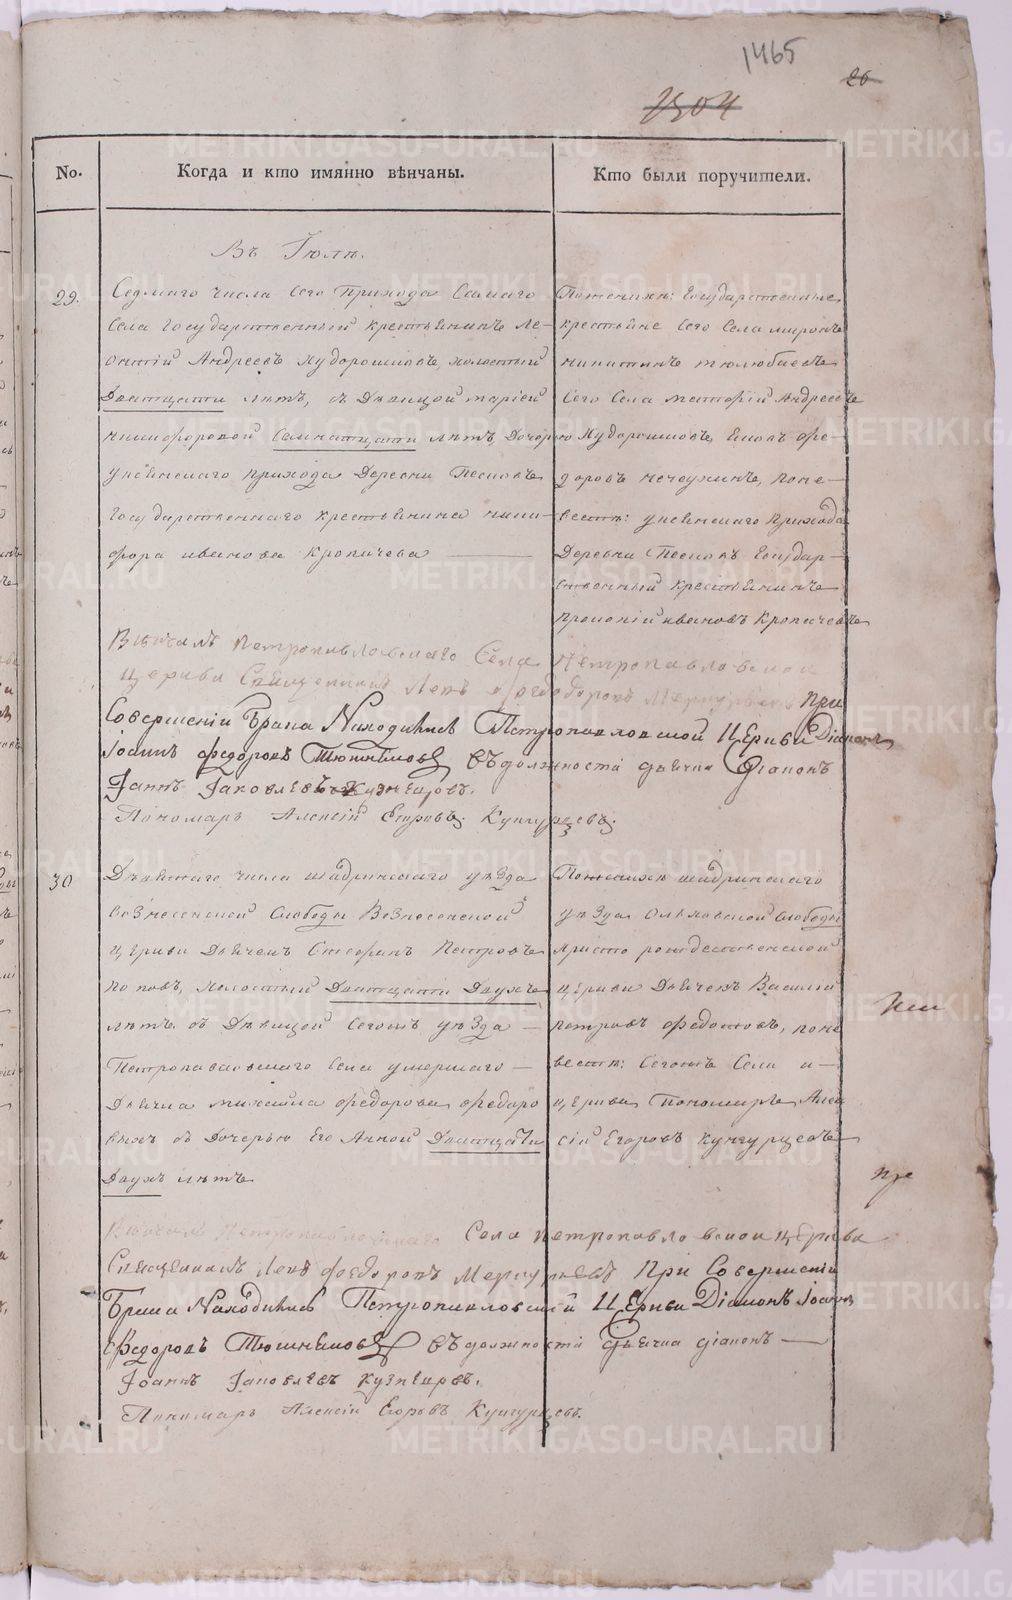 1465
26
1504
No.
Когда и кто имянно вѣнчаны.
Кто были поручители.
Въ Іюлѣ.
29.
Седмаго числа сего прихода Самаго
села государственный крестьянинъ Ле-
онтій Андреевъ Худорошковъ, холостый
Дватцати лѣтъ, съ Дѣвицой Маріей
никифоровой Семнатцати лѣтъ, Дочерью
прихода Деревни Песковъ
государственнаго крестьянина ники-
фора иванова Кропачева
По женихѣ: государственные
крестьяне сего села миронъ
никитинъ
сего села Андреевъ
Худорошковъ, фе-
доровъ по не-
вестѣ: прихода
Деревни Песковъ государ-
ственный крестьянинъ
ивановъ Кропачевъ
Вѣнчалъ Петропавловскаго Села Петропавловской
Церкви Священникъ Левъ Федоровъ При
Совершеніи Брака Находились Петропавловской Церкви Діаконъ
Іоаннъ Федоровъ въ должности дьячка Діаконъ
Іаннъ Іаковлевъ Кузнецовъ.
Пономарь Алексій Егоровъ Кунгурцевъ.
30
числа шадринскаго уѣзда
вознесенской Слободы Вознесенской
церкви Дьячекъ Стефанъ Петровъ
Поповъ, холостый Дватцати Двухъ
лѣтъ съ Дѣвицой сегожъ уѣзда
Петропавловскаго села умершаго
Дьячка михаила федорова федоро
выхъ съ Дочерью его Анной Дватцати
Двухъ лѣтъ
По женихѣ шадринскаго
уѣзда слободы
христо рождественской
церкви Дьячекъ Василій
петровъ федотовъ, по не
вестѣ: сегожъ Села и
церкви Пономарь Алек
сій Егоровъ кунгурцевъ
Вѣнчалъ Петропавловскаго Села петропавловской церкви
Священникъ Левъ Федоровъ При Совершеніи
Брака Находились Петропавловской Церкви Діаконъ Іоаннъ
Федоровъ въ должности дьячка діаконъ
Іоаннъ Іаковлевъ Кузнецовъ.
Пономарь Алексій Егоровъ Кунгурцевъ.
METRIKI.GASO-URAL.RU